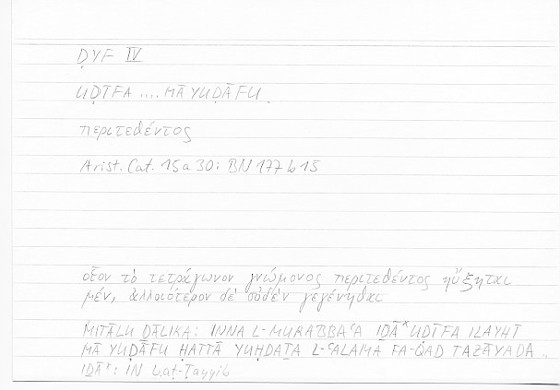 ḌYF IV
UḌĪFA .... MĀ YUḌĀFU
περιτεθέντος
Arist. Cat. 15a30; BN 177b15
οἷον τὸ τετράγωνον γνώμονος περιτεθέντος ηὔξηται
μέν, ἀλλοιότερον δὲ οὐδὲν γεγένηται
MIṮĀLU ḎĀLIKA: INNA L-MURABBAʿA IḎĀ* UḌĪFA ILAYHI
MĀ YUḌĀFU ḤATTĀ YUḤDAṮA L-ʿALAMA FA-QAD TAZĀYADA ..
IḎĀ*: IN b.aṭ-Ṭayyib